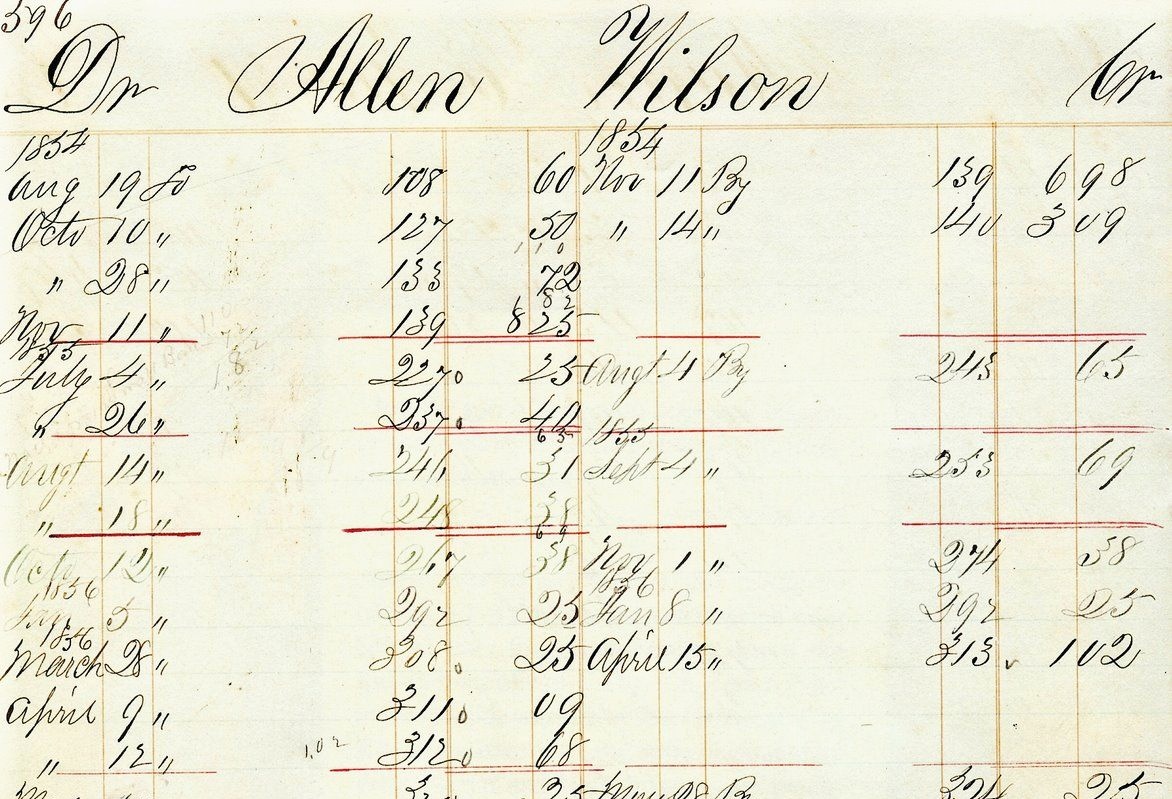 596
Dr Allen Wilson Cr
1854 1854
Aug 19 To 108 60 Nov 11 By 139 6 98
Octo 10 " 127 50 " 14 " 140 3 09
" 28 " 133 72
1 82
Nov 11 " 139 8 25
1855
July 4 " 227 25 Augt 4 By 243 65
" 26 " 237 40
65 1855
Augt 14 " 246 31 Sept 4 " 253 69
" 18 " 248 38
69
Octo 12 " 267 38 Nov 1 " 274 38
1856 1856
Jan 5 " 292 25 Jan 8 " 292 25
1856
March 28 " 308 25 April 15 " 313 102
April 9 " 311 09
" 12 " 1.02 312 68
25 By 324 25